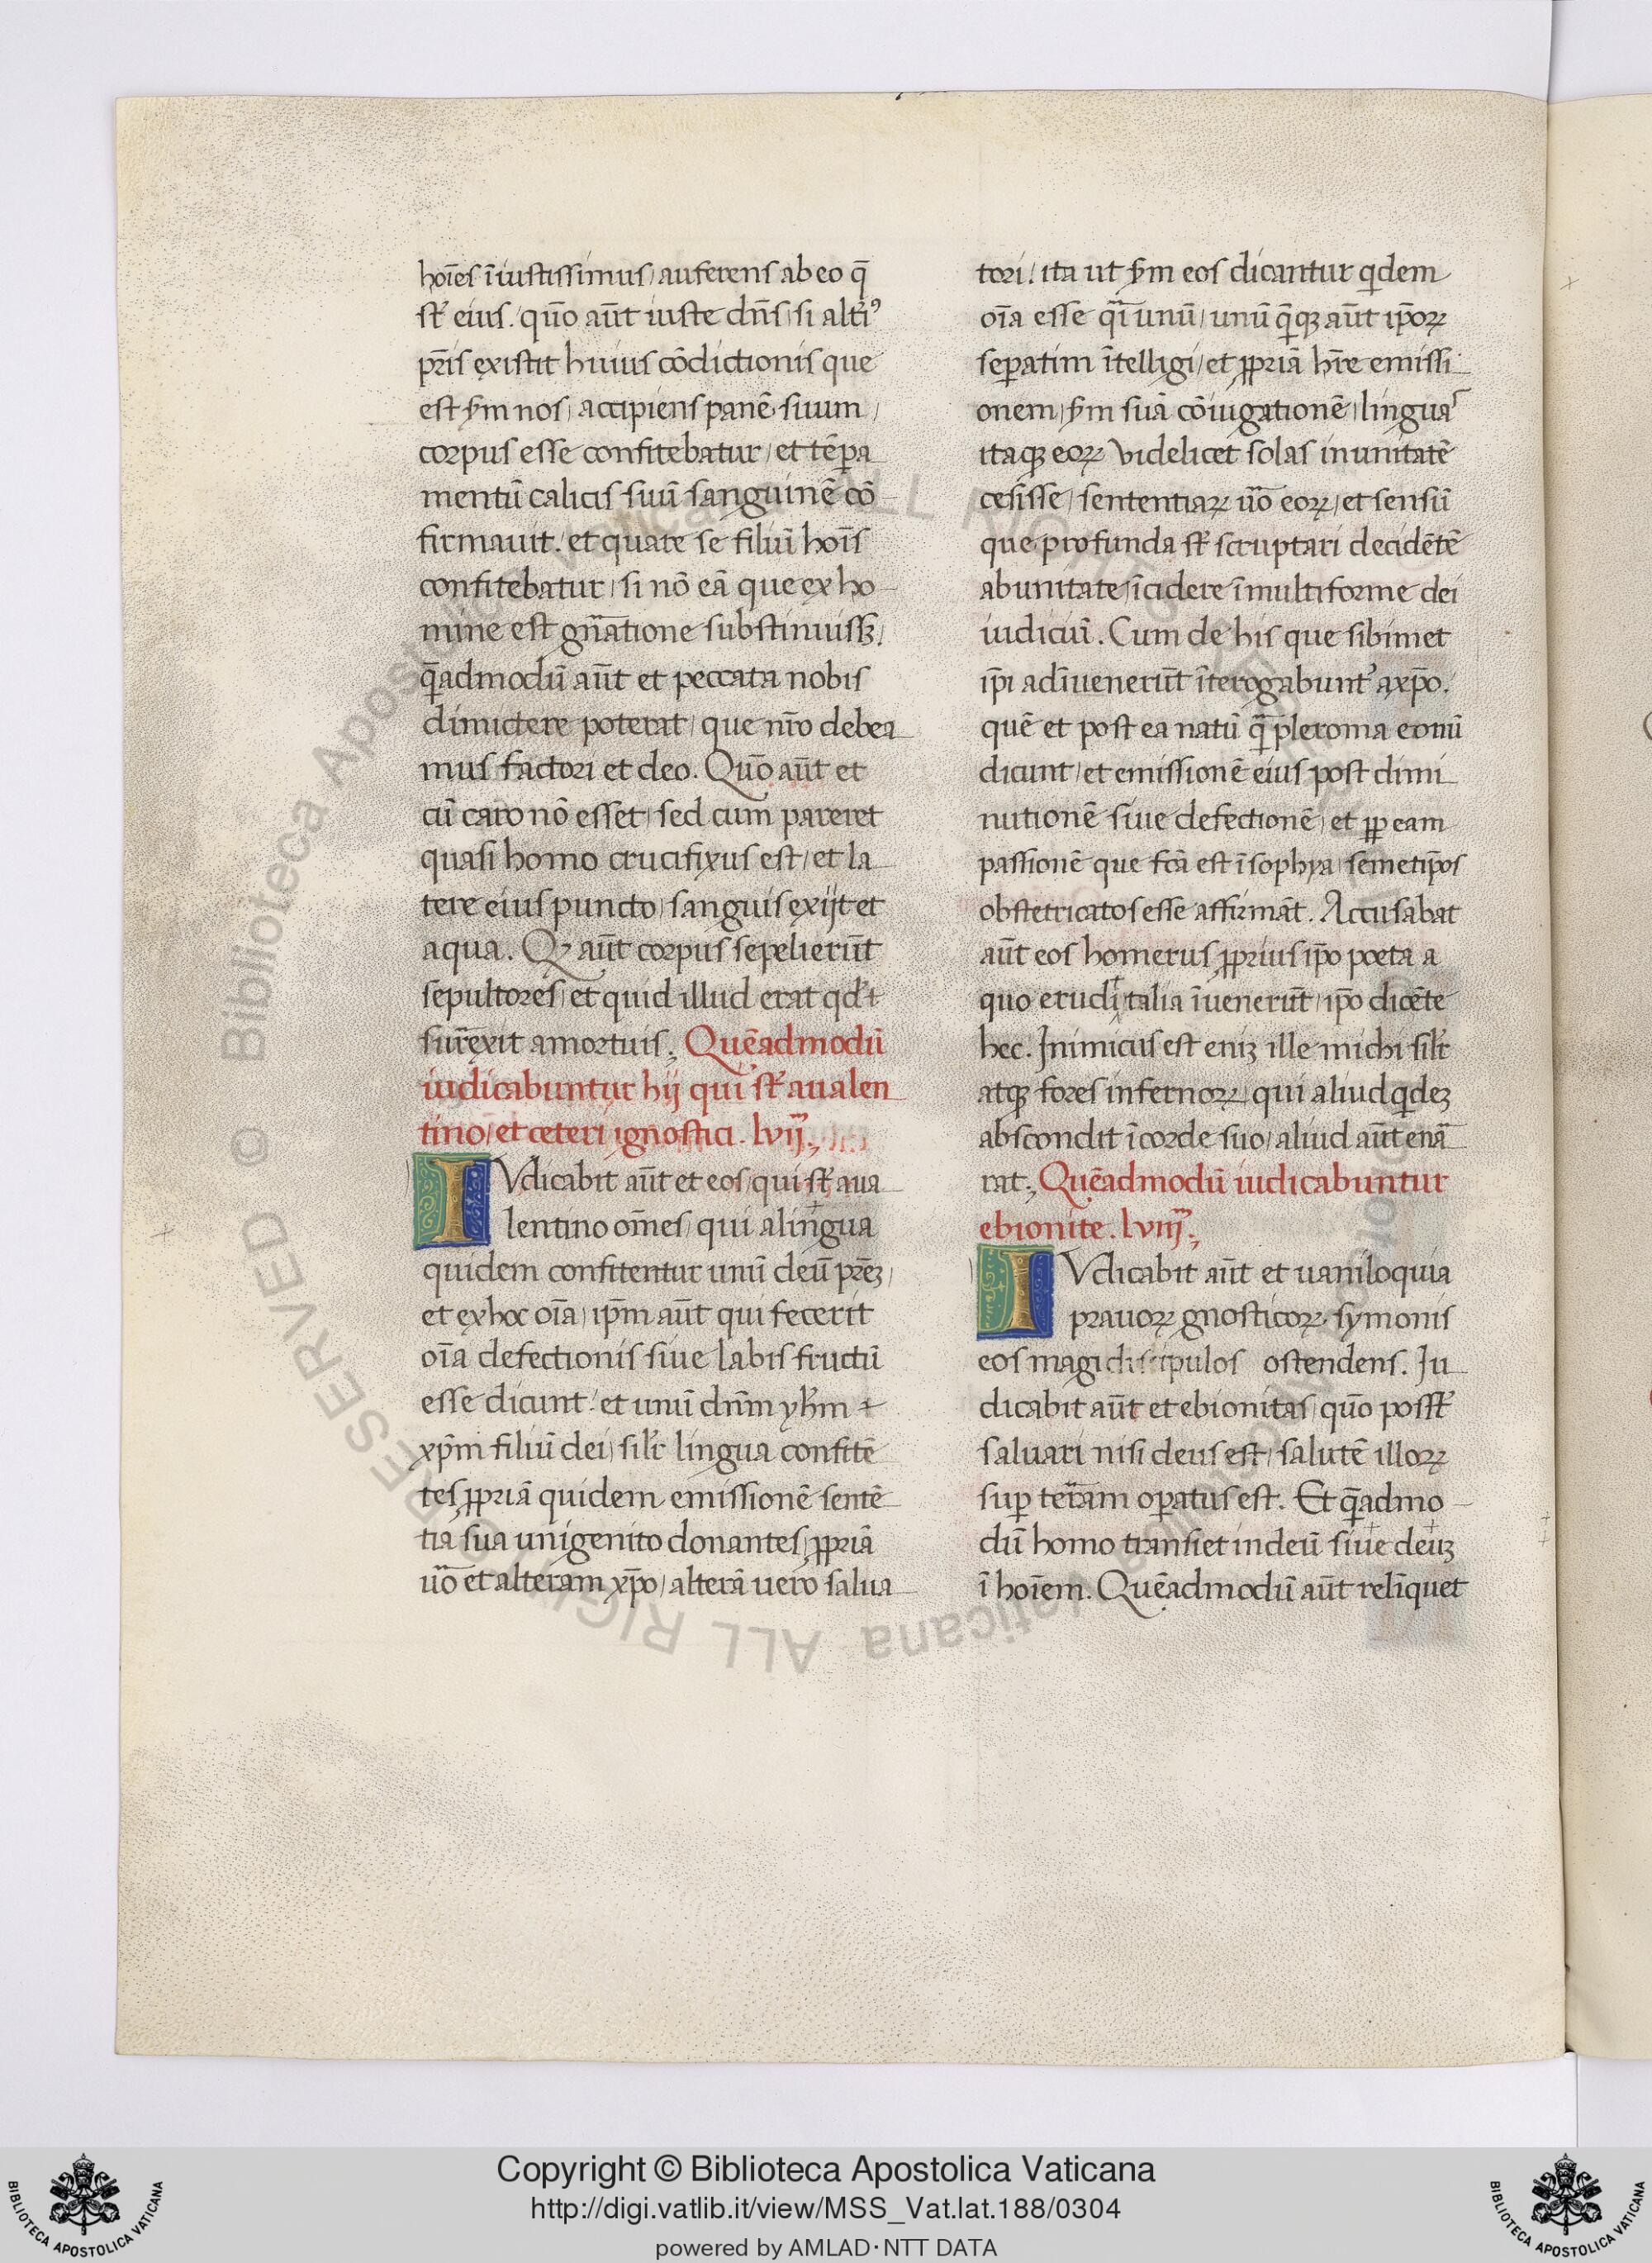 hoīes ĩiustissimus / auferens ab eo q̄
st̄ eius. quō aūt iuste dn̄s / si alti᷎ꝰ
pr̄is existit huius cōdictionis que
est ẜm nos / accipiens panē suum /
corpus esse confitebatur / et tēp̲a
mentū calicis suū sanguinē cō
firmauit / et quare se filiū hoīs
confitebatur / si nō eā que ex ho
mine est gn̄atione substinuissꝫ /
q̄admodū aūt et peccata nobis
dimictere poterat / que nr̄o debea
mus factori et deo. Quō aūt et
cū caro nō esset / sed cum pareret
quasi homo crucifixus est / et la
tere eius puncto / sanguis exijt et
aqua. Qꝫ aūt corpus sepelierūt
sepultores / et quid illud erat qd̵ ⁊
surr̄exit a mortuis ; Quēadmodū
iudicabuntur hij qui st̄ a ualen
tino / et ceteri ignostici . lvij ;
IVdicabit aūt et eos / qui st̄ a ua
lentino om̄es / qui a lingua
quidem confitentur unū deū pr̄eꝫ /
et ex hoc oīa / ip̄m aūt qui fecerit
oīa defectionis siue labis fructū
esse dicunt / et unū dn̄m yh̄m ⁊
xp̄m filiū dei / silr̄ lingua confitē
tes / ꝓpriā quidem emissionē sentē
tia sua unigenito donantes / ꝓpriā
uō et alteram xp̄o / alterā uero salua
tori / ita ut ẜm eos dicantur qdem
oīa esse q̄i unū / unū q̄qꝫ aūt ip̄oꝝ
sep̲atim ĩtelligi / et ꝓpriā hr̄e emissi
onem / ẜm suā cōiugationē / lingua᷎
itaqꝫ eoꝝ videlicet solas in unitatē
cesisse / sententiaꝝ uō eoꝝ / et sensū
que profunda st̄ scruptari decidētē
ab unitate / ĩcidere ĩ multiforme dei
iudiciū. Cum de his que sibimet
ip̄i adĩuenerūt ĩterogabunt᷎ a xp̄o.
quē et post ea natū q̄ pleroma eonū
dicunt / et emissionē eius post dimi
nutionē siue defectionē / et ꝓp eam
passionē que fc̄a est ĩ sophya / semetip̄os
obstetricatos esse affirmāt. Accusabat
aūt eos homerus ꝓprius ip̄o poeta a
quo erudi᷎ / talia ĩuenerūt / ip̄o dicēte
hec. Inimicus est eniꝫ ille michi silr̄
atqꝫ fores infernoꝝ / qui aliud qdeꝫ
abscondit ĩ corde suo / aliud aūt enā
rat ; Quēadmodū iudicabuntur
ebionite . lviij ;
IVdicabit aūt et uaniloquia
prauoꝝ gnosticoꝝ symonis
eos magi discipulos ostendens. Iu
dicabit aūt et ebionitas / quō posst̄
saluari nisi deus est / salutē illoꝝ
sup̲ terr̄am op̲atus est. Et q̄admo
dū homo transiet in deū siue deuꝫ
ĩ hoīem. Quēadmodū aūt relĩquet
Copyright © Biblioteca Apostolica Vaticana
http://digi.vatlib.it/view/MSS_Vat.lat.188/0304
powered by AMLAD·NTT DATA
BIBLIOTECA APOSTOLICA VATICANA
BIBLIOTECA APOSTOLICA VATICANA
© Biblioteca Apostolica Vaticana ALL RIGHTS RESERVED